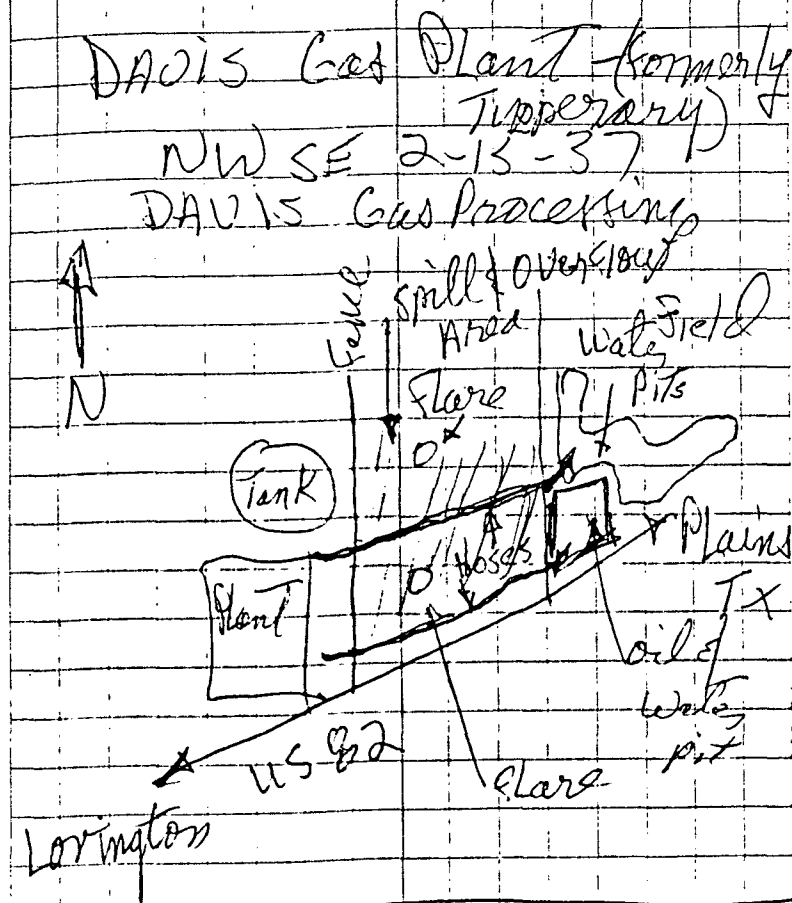 DAVIS Gas Plant (formerly
Tipperary)
NW SE 2-15-37
DAVIS Gas Processing
N
Fence
Spill & Overflow
Area
Field
Water
Pits
Flare
Tank
Hoses
Plant
Plains
TX
oil &
Water
pit
US 82
Flare
Lovington